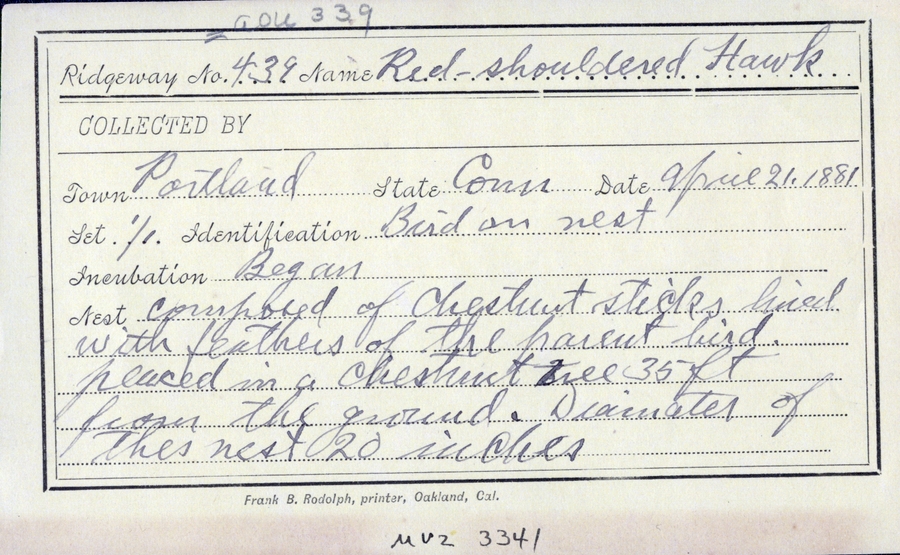 AOU 339
Ridgeway No. 439 Name Red-shouldered Hawk
COLLECTED BY
Town Portland State Conn Date April 21. 1881
Set 1/1. Identification Bird on nest
Incubation Began
Nest composed of chestnut sticks lined
with feathers of the parent bird.
placed in a chestnut tree 35 ft
from the ground. Diamater of
thes nest 20 inches
Frank B. Rodolph, printer, Oakland, Cal.
MVZ 3341